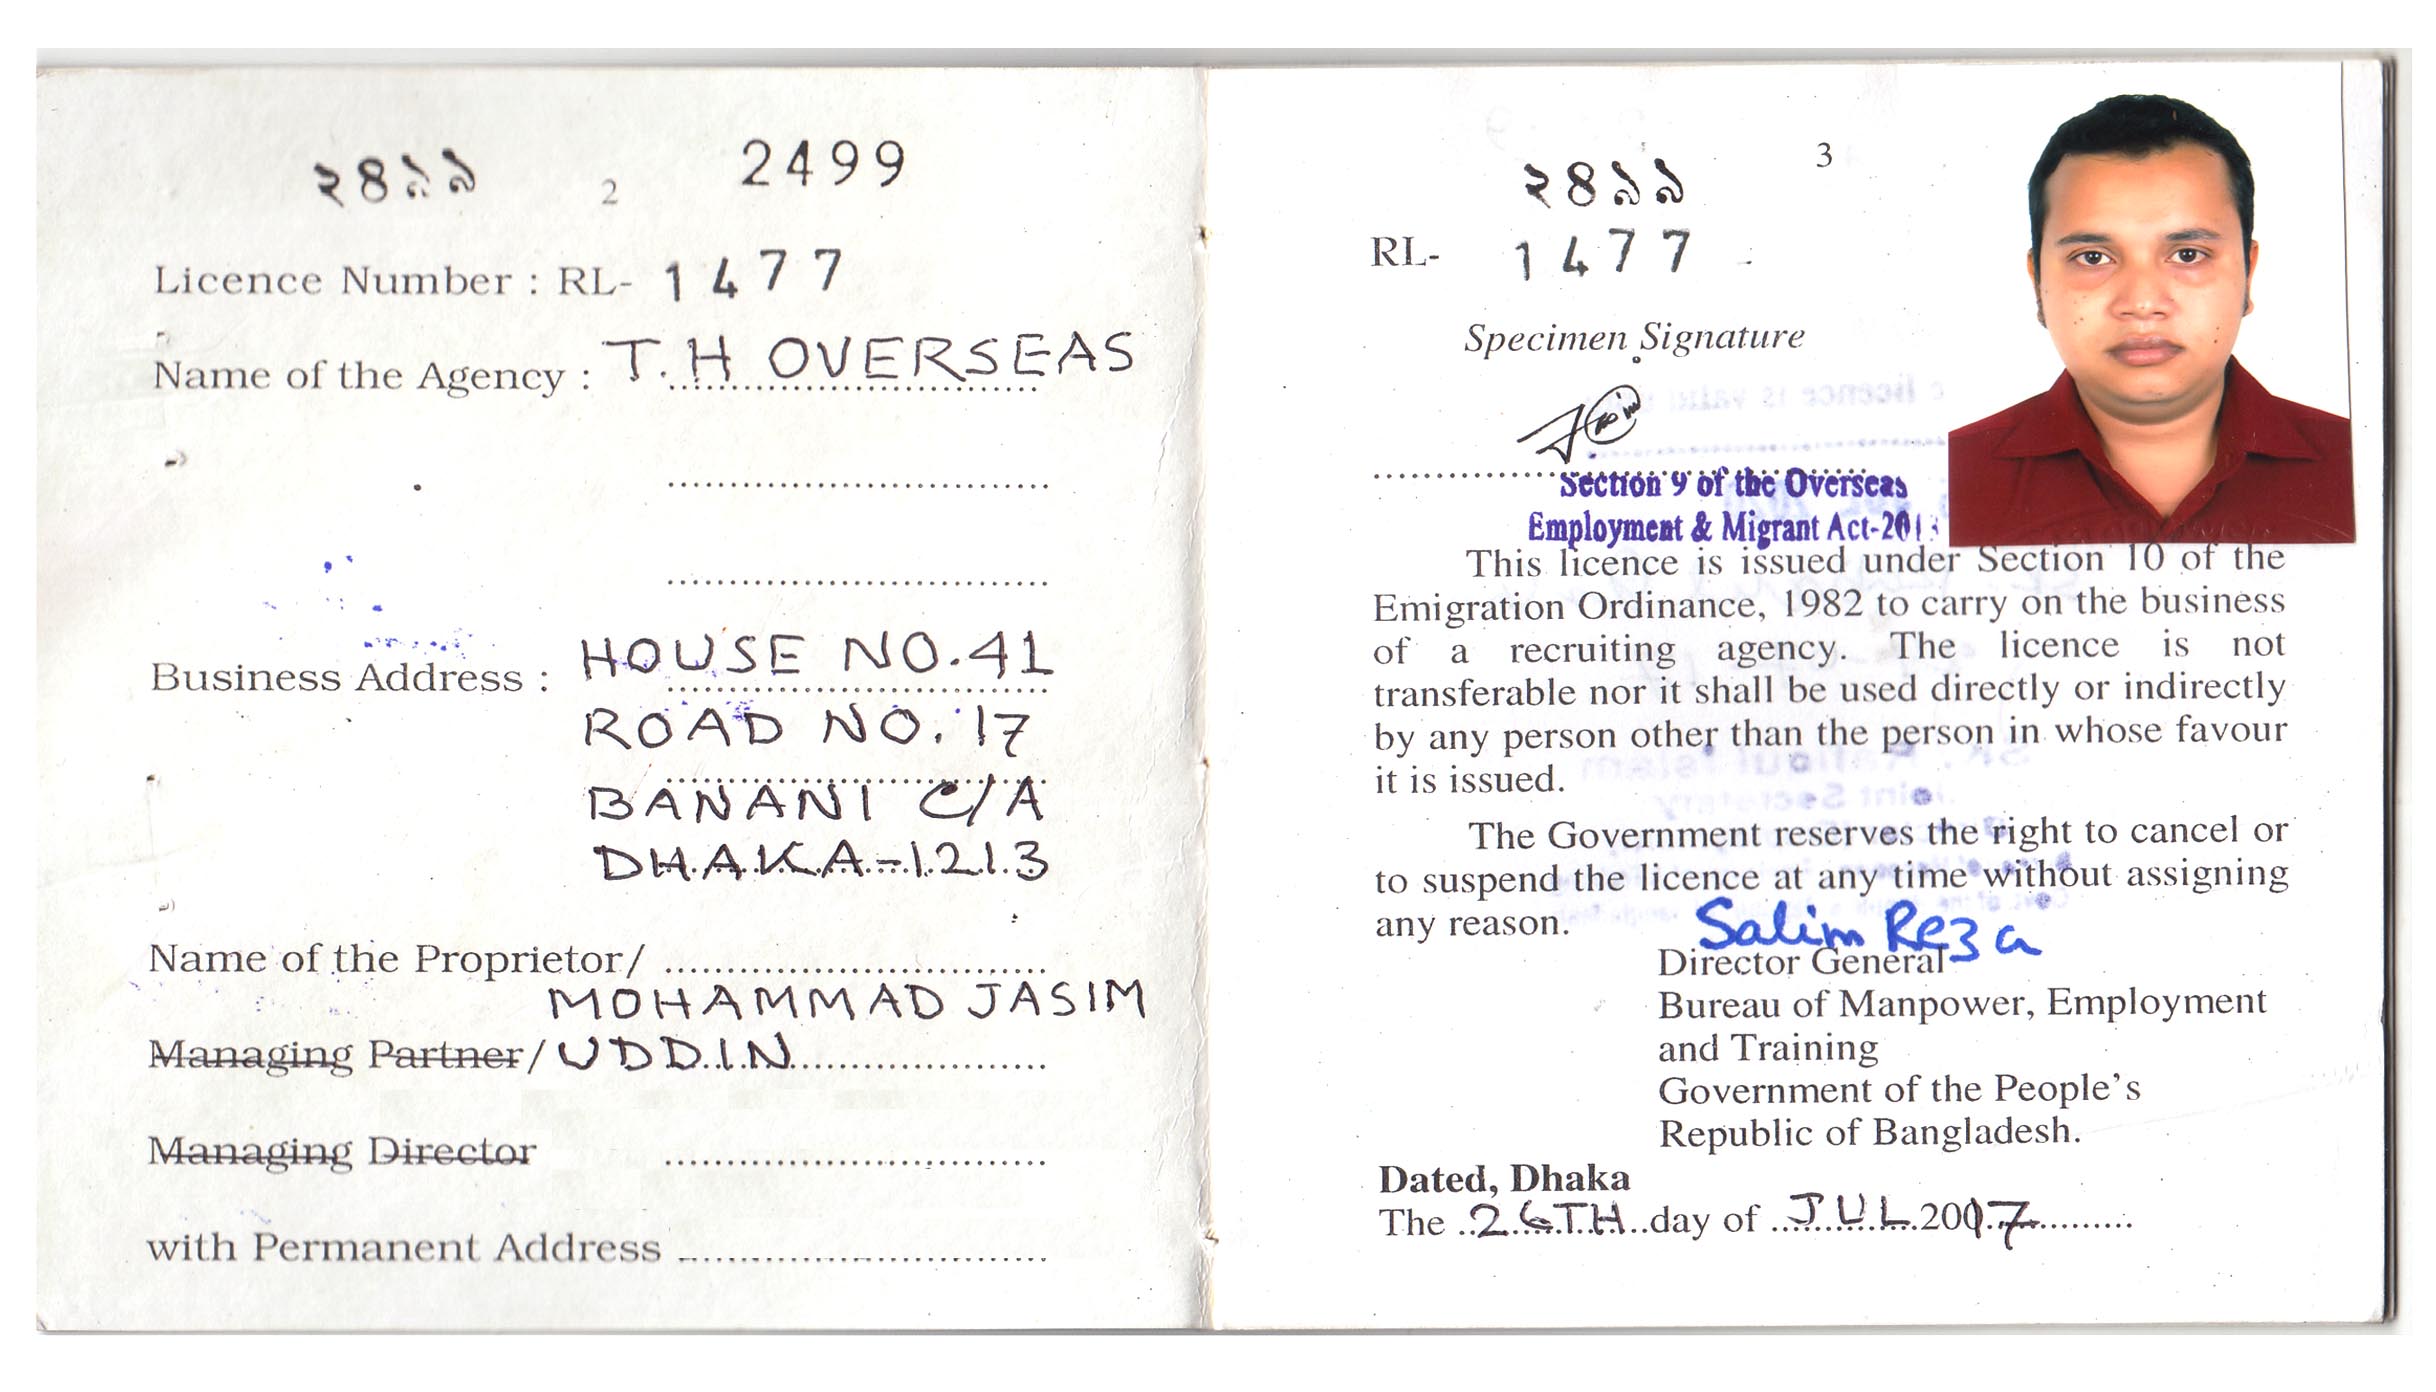 ২৪৯৯ 2 2499
Licence Number : RL- 1477
Name of the Agency : T.H OVERSEAS
Business Address : HOUSE NO.41
ROAD NO. 17
BANANI C/A
DHAKA-1213
Name of the Proprietor/
MOHAMMAD JASIM
Managing Partner/ UDDIN
Managing Director
with Permanent Address
3
২৪৯৯
RL- 1477
Specimen Signature
Section 9 of the Overseas
Employment & Migrant Act-2013
This licence is issued under Section 10 of the
Emigration Ordinance, 1982 to carry on the business
of a recruiting agency. The licence is not
transferable nor it shall be used directly or indirectly
by any person other than the person in whose favour
it is issued.
The Government reserves the right to cancel or
to suspend the licence at any time without assigning
any reason.
Salim Reza
Director General
Bureau of Manpower, Employment
and Training
Government of the People's
Republic of Bangladesh.
Dated, Dhaka
The 26TH day of JUL 2017